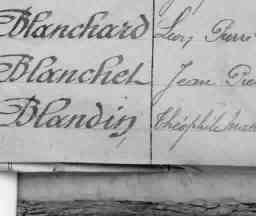 Blanchard Léon Pierre
Blanchet Jean Pie
Blandin Théophile